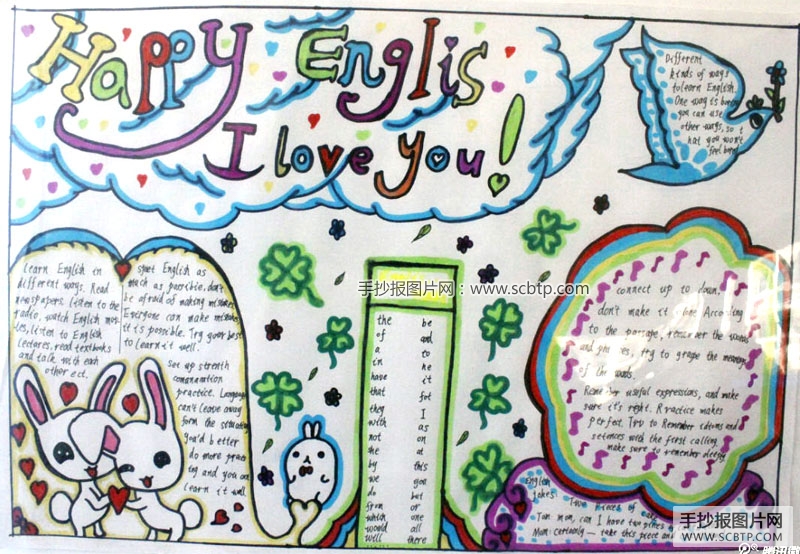 Happy Englis
I love you!
Different
kinds of ways
to learn English.
One way is
you can use
other ways, so t
hat you won't
feel bored
learn English in
different ways. Read
newspapers, listen to the
radio, watch English mov-
ies, listen to English
lectures, read textbooks
and talk with each
other ect.
English as
much as possible, don't
be afraid of making mistakes
Everyone can make mistakes
it's possible. Try your best
to learn it well.
Set up strenth
practice. Language
can't leave away
form the
you'd better
do more
ing and you
learn it well
手抄报图片网：www.scbtp.com
the be
of and
a to
in he
have it
that for
they I
with as
not on
she at
by this
we you
do but
from or
which one
would all
will there
connect up to down,
don't make it alone According
to the passage, remember the words
and phrases, try to grape the meanings
of the words.
Remember useful expressions, and make
sure it's right. Practice makes
perfect. Try to Remember idioms and
setences with the first calling
make sure to remember deeply
English
jokes Two pieces of cake
Tom: mom, can I have two pieces of
Mom: Certainly — take this piece and
手抄报图片网
WWW.SCBTP.COM